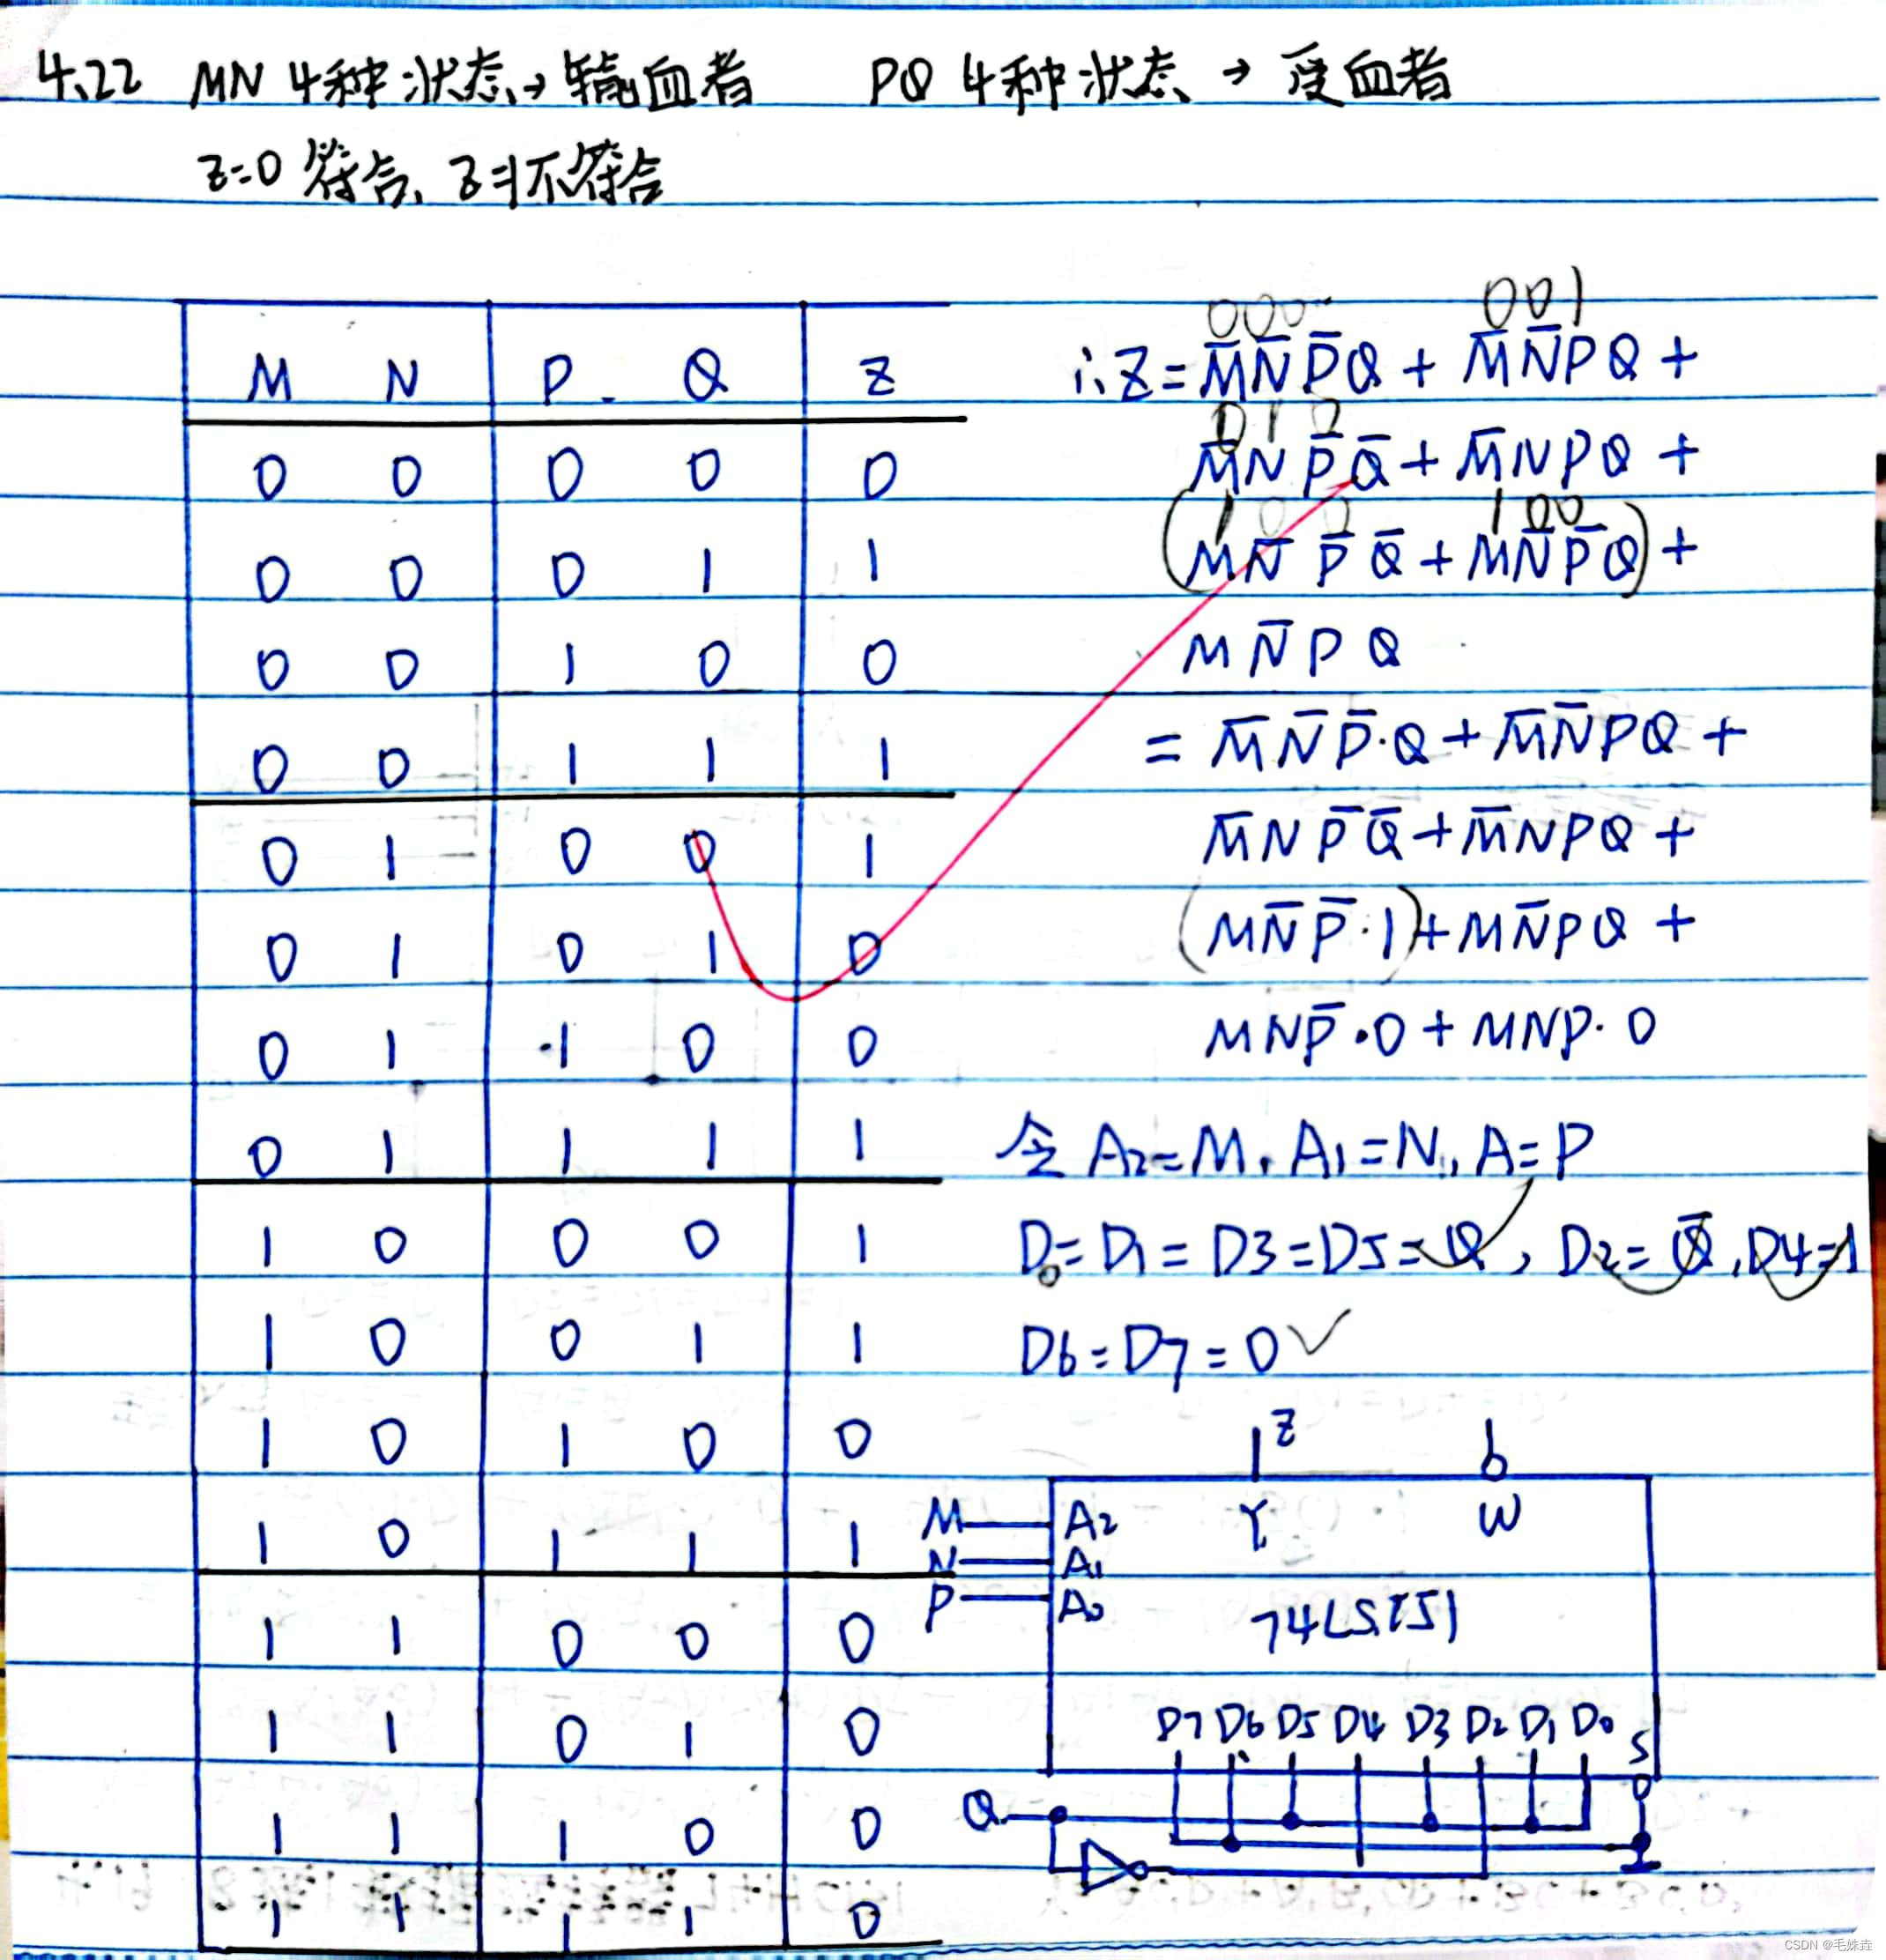 4.22 MN 4种状态→输血者 PQ 4种状态→受血者
Z=0 符合, Z=1不符合
M N P Q Z
0 0 0 0 0
0 0 0 1 1
0 0 1 0 0
0 0 1 1 1
0 1 0 0 1
0 1 0 1 0
0 1 1 0 0
0 1 1 1 1
1 0 0 0 1
1 0 0 1 1
1 0 1 0 0
1 0 1 1 1
1 1 0 0 0
1 1 0 1 0
1 1 1 0 0
1 1 1 1 0
000 001
∴Z=M̅N̅P̅Q + M̅N̅PQ +
010
M̅NP̅Q̅ + M̅NPQ +
100 100
(MN̅P̅Q̅ + MN̅P̅Q) +
MN̅PQ
= M̅N̅P̅·Q + M̅N̅PQ +
M̅NP̅Q̅ + M̅NPQ +
(MN̅P̅·1) + MN̅PQ +
MNP̅·0 + MNP·0
令 A2=M, A1=N, A=P
D0=D1=D3=D5=Q, D2=Q̅, D4=1
D6=D7=0✓
Z
M A2 Y W
N A1
P A0
74LS151
D7 D6 D5 D4 D3 D2 D1 D0 S
Q
CSDN @毛姝垚